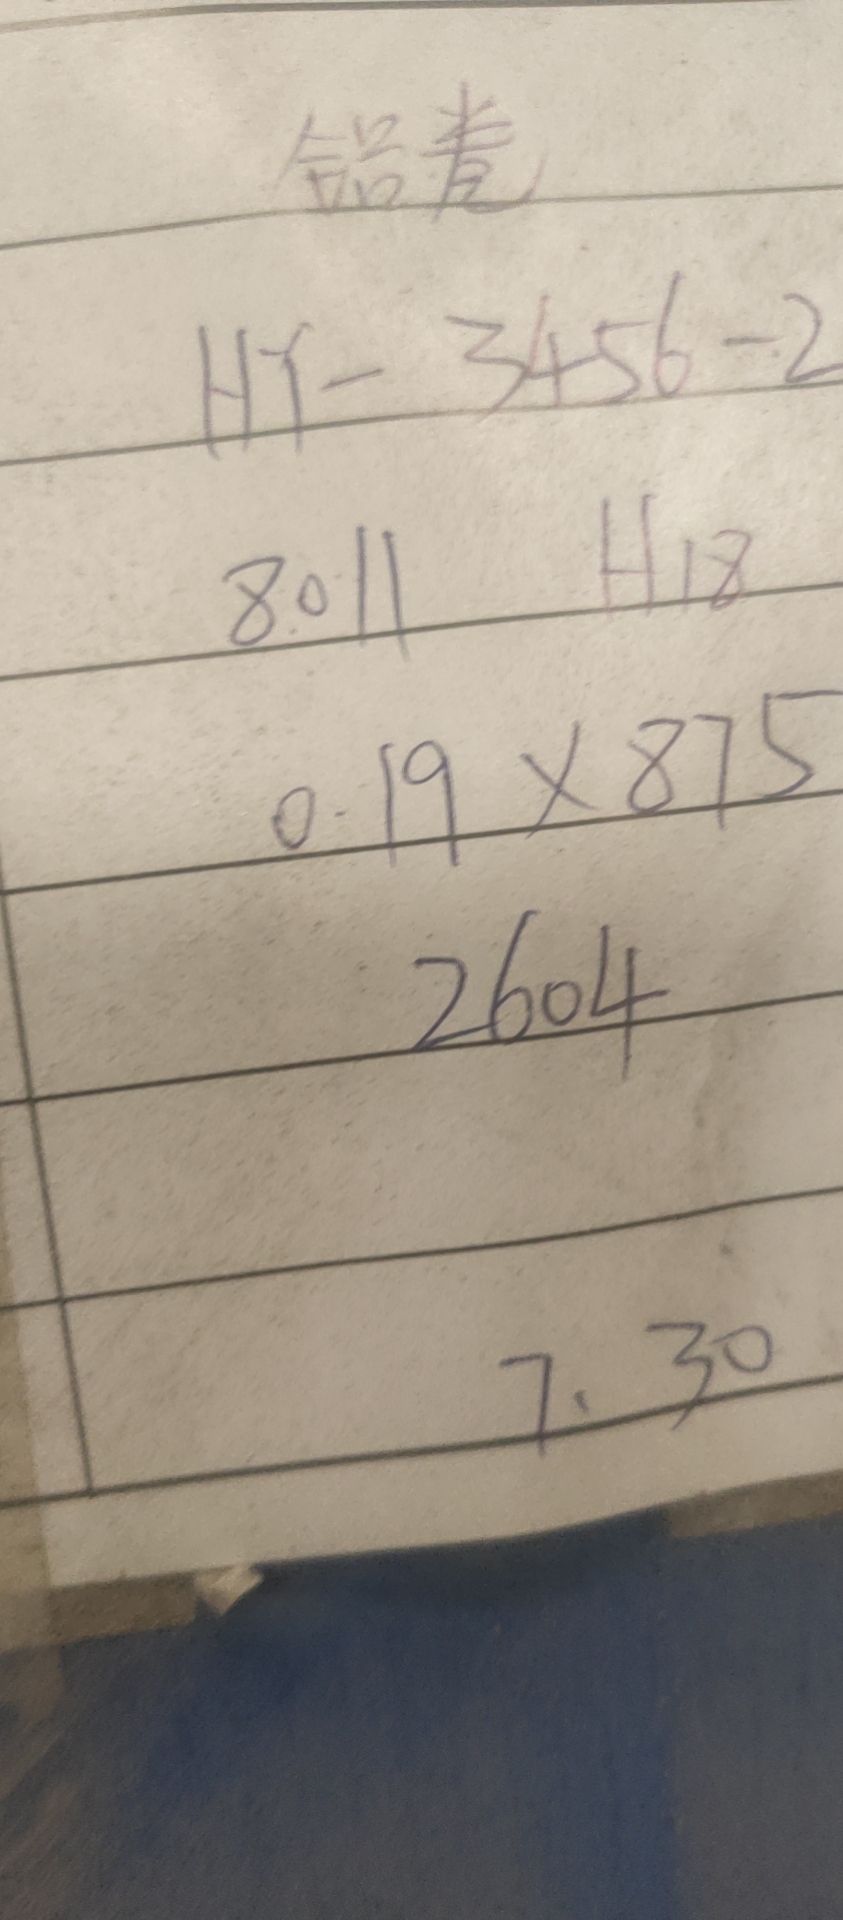 铝卷
HY-3456-2
8011 H18
0.19×875
2604
7.30